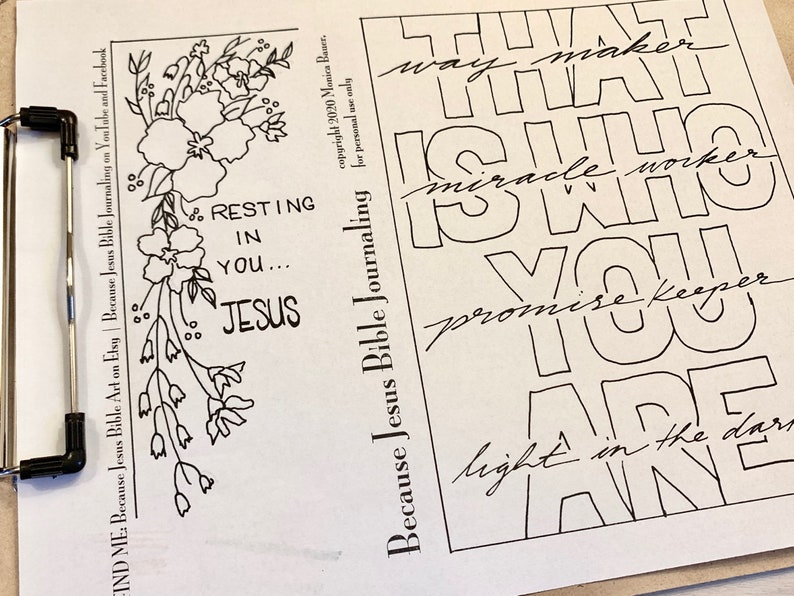 FIND ME: Because Jesus Bible Art on Etsy | Because Jesus Bible Journaling on YouTube and Facebook
RESTING
IN
YOU...
JESUS
copyright 2020 Monica Bauer,
for personal use only
Because Jesus Bible Journaling
THAT
way maker
IS WHO
miracle worker
YOU
promise keeper
ARE
light in the dark